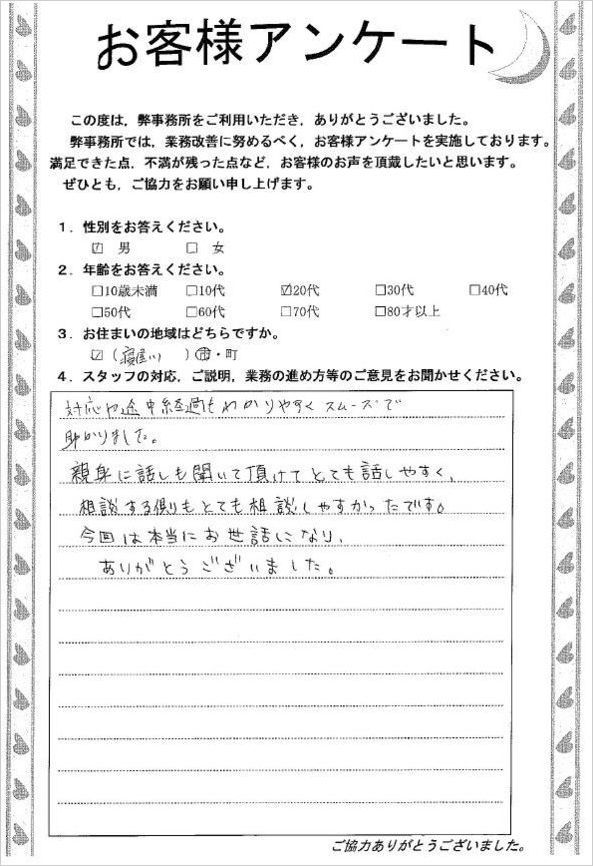 お客様アンケート
この度は，弊事務所をご利用いただき，ありがとうございました。
弊事務所では，業務改善に努めるべく，お客様アンケートを実施しております。
満足できた点，不満が残った点など，お客様のお声を頂戴したいと思います。
ぜひとも，ご協力をお願い申し上げます。
１．性別をお答えください。
☑ 男 □ 女
２．年齢をお答えください。
□10歳未満 □10代 ☑20代 □30代 □40代
□50代 □60代 □70代 □80才以上
３．お住まいの地域はどちらですか。
☑（寝屋川 ）市・町
４．スタッフの対応，ご説明，業務の進め方等のご意見をお聞かせください。
対応や途中経過もわかりやすくスムーズで
助かりました。
親身に話しも聞いて頂けてとても話しやすく、
相談する側もとても相談しやすかったです。
今回は本当にお世話になり、
ありがとうございました。
ご協力ありがとうございました。